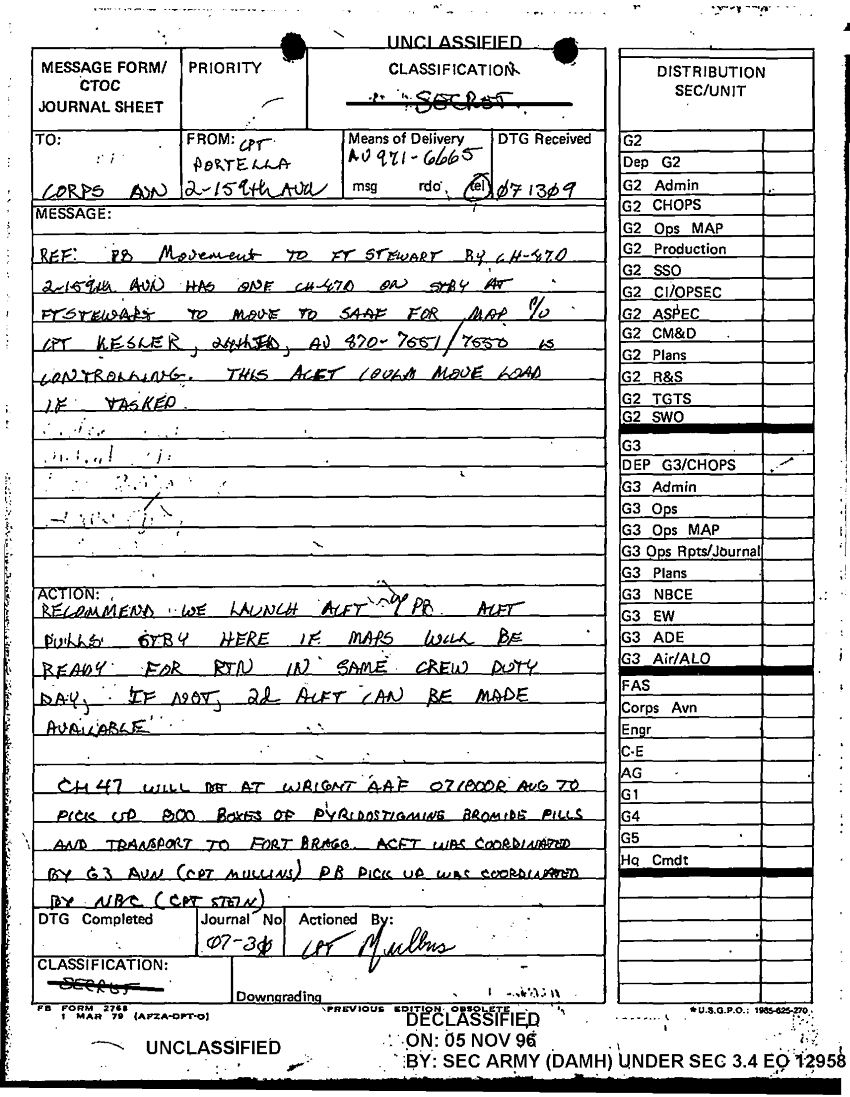 UNCLASSIFIED
MESSAGE FORM/
CTOC
JOURNAL SHEET
PRIORITY
CLASSIFICATION
SECRET
TO:
CORPS AVN
FROM: CPT
PORTELLA
2-159th AVN
Means of Delivery
AV 971-6665
msg rdo. tel
DTG Received
071309
MESSAGE:
REF: PB Movement TO FT STEWART BY CH-47D
2-159th AVN HAS ONE CH-47D ON STBY AT
FT STEWART TO MOVE TO SAAF FOR MAP P/U
CPT KESLER, 24th ID, AV 870-7551/7550 IS
CONTROLLING. THIS ACFT COULD MOVE LOAD
IF TASKED
ACTION:
RECOMMEND WE LAUNCH ACFT PB. ACFT
PULLS STBY HERE IF MAPS WILL BE
READY FOR RTN IN SAME CREW DUTY
DAY, IF NOT, 2d ACFT CAN BE MADE
AVAILABLE
CH 47 WILL BE AT WRIGHT AAF 071800R AUG TO
PICK UP 800 BOXES OF PYRIDOSTIGMINE BROMIDE PILLS
AND TRANSPORT TO FORT BRAGG. ACFT WAS COORDINATED
BY G3 AVN (CPT MULLINS) PB PICK UP WAS COORDINATED
BY NBC (CPT STEIN)
DTG Completed
Journal No
07-30
Actioned By:
CPT Mullins
CLASSIFICATION:
SECRET
Downgrading
FB FORM 2768
1 MAR 79 (AFZA-DPT-O)
PREVIOUS EDITION OBSOLETE
DISTRIBUTION
SEC/UNIT
G2
Dep G2
G2 Admin
G2 CHOPS
G2 Ops MAP
G2 Production
G2 SSO
G2 CI/OPSEC
G2 ASPEC
G2 CM&D
G2 Plans
G2 R&S
G2 TGTS
G2 SWO
G3
DEP G3/CHOPS
G3 Admin
G3 Ops
G3 Ops MAP
G3 Ops Rpts/Journal
G3 Plans
G3 NBCE
G3 EW
G3 ADE
G3 Air/ALO
FAS
Corps Avn
Engr
C-E
AG
G1
G4
G5
Hq Cmdt
*U.S.G.P.O.: 1985-625-270
UNCLASSIFIED
DECLASSIFIED
ON: 05 NOV 96
BY: SEC ARMY (DAMH) UNDER SEC 3.4 EO 12958